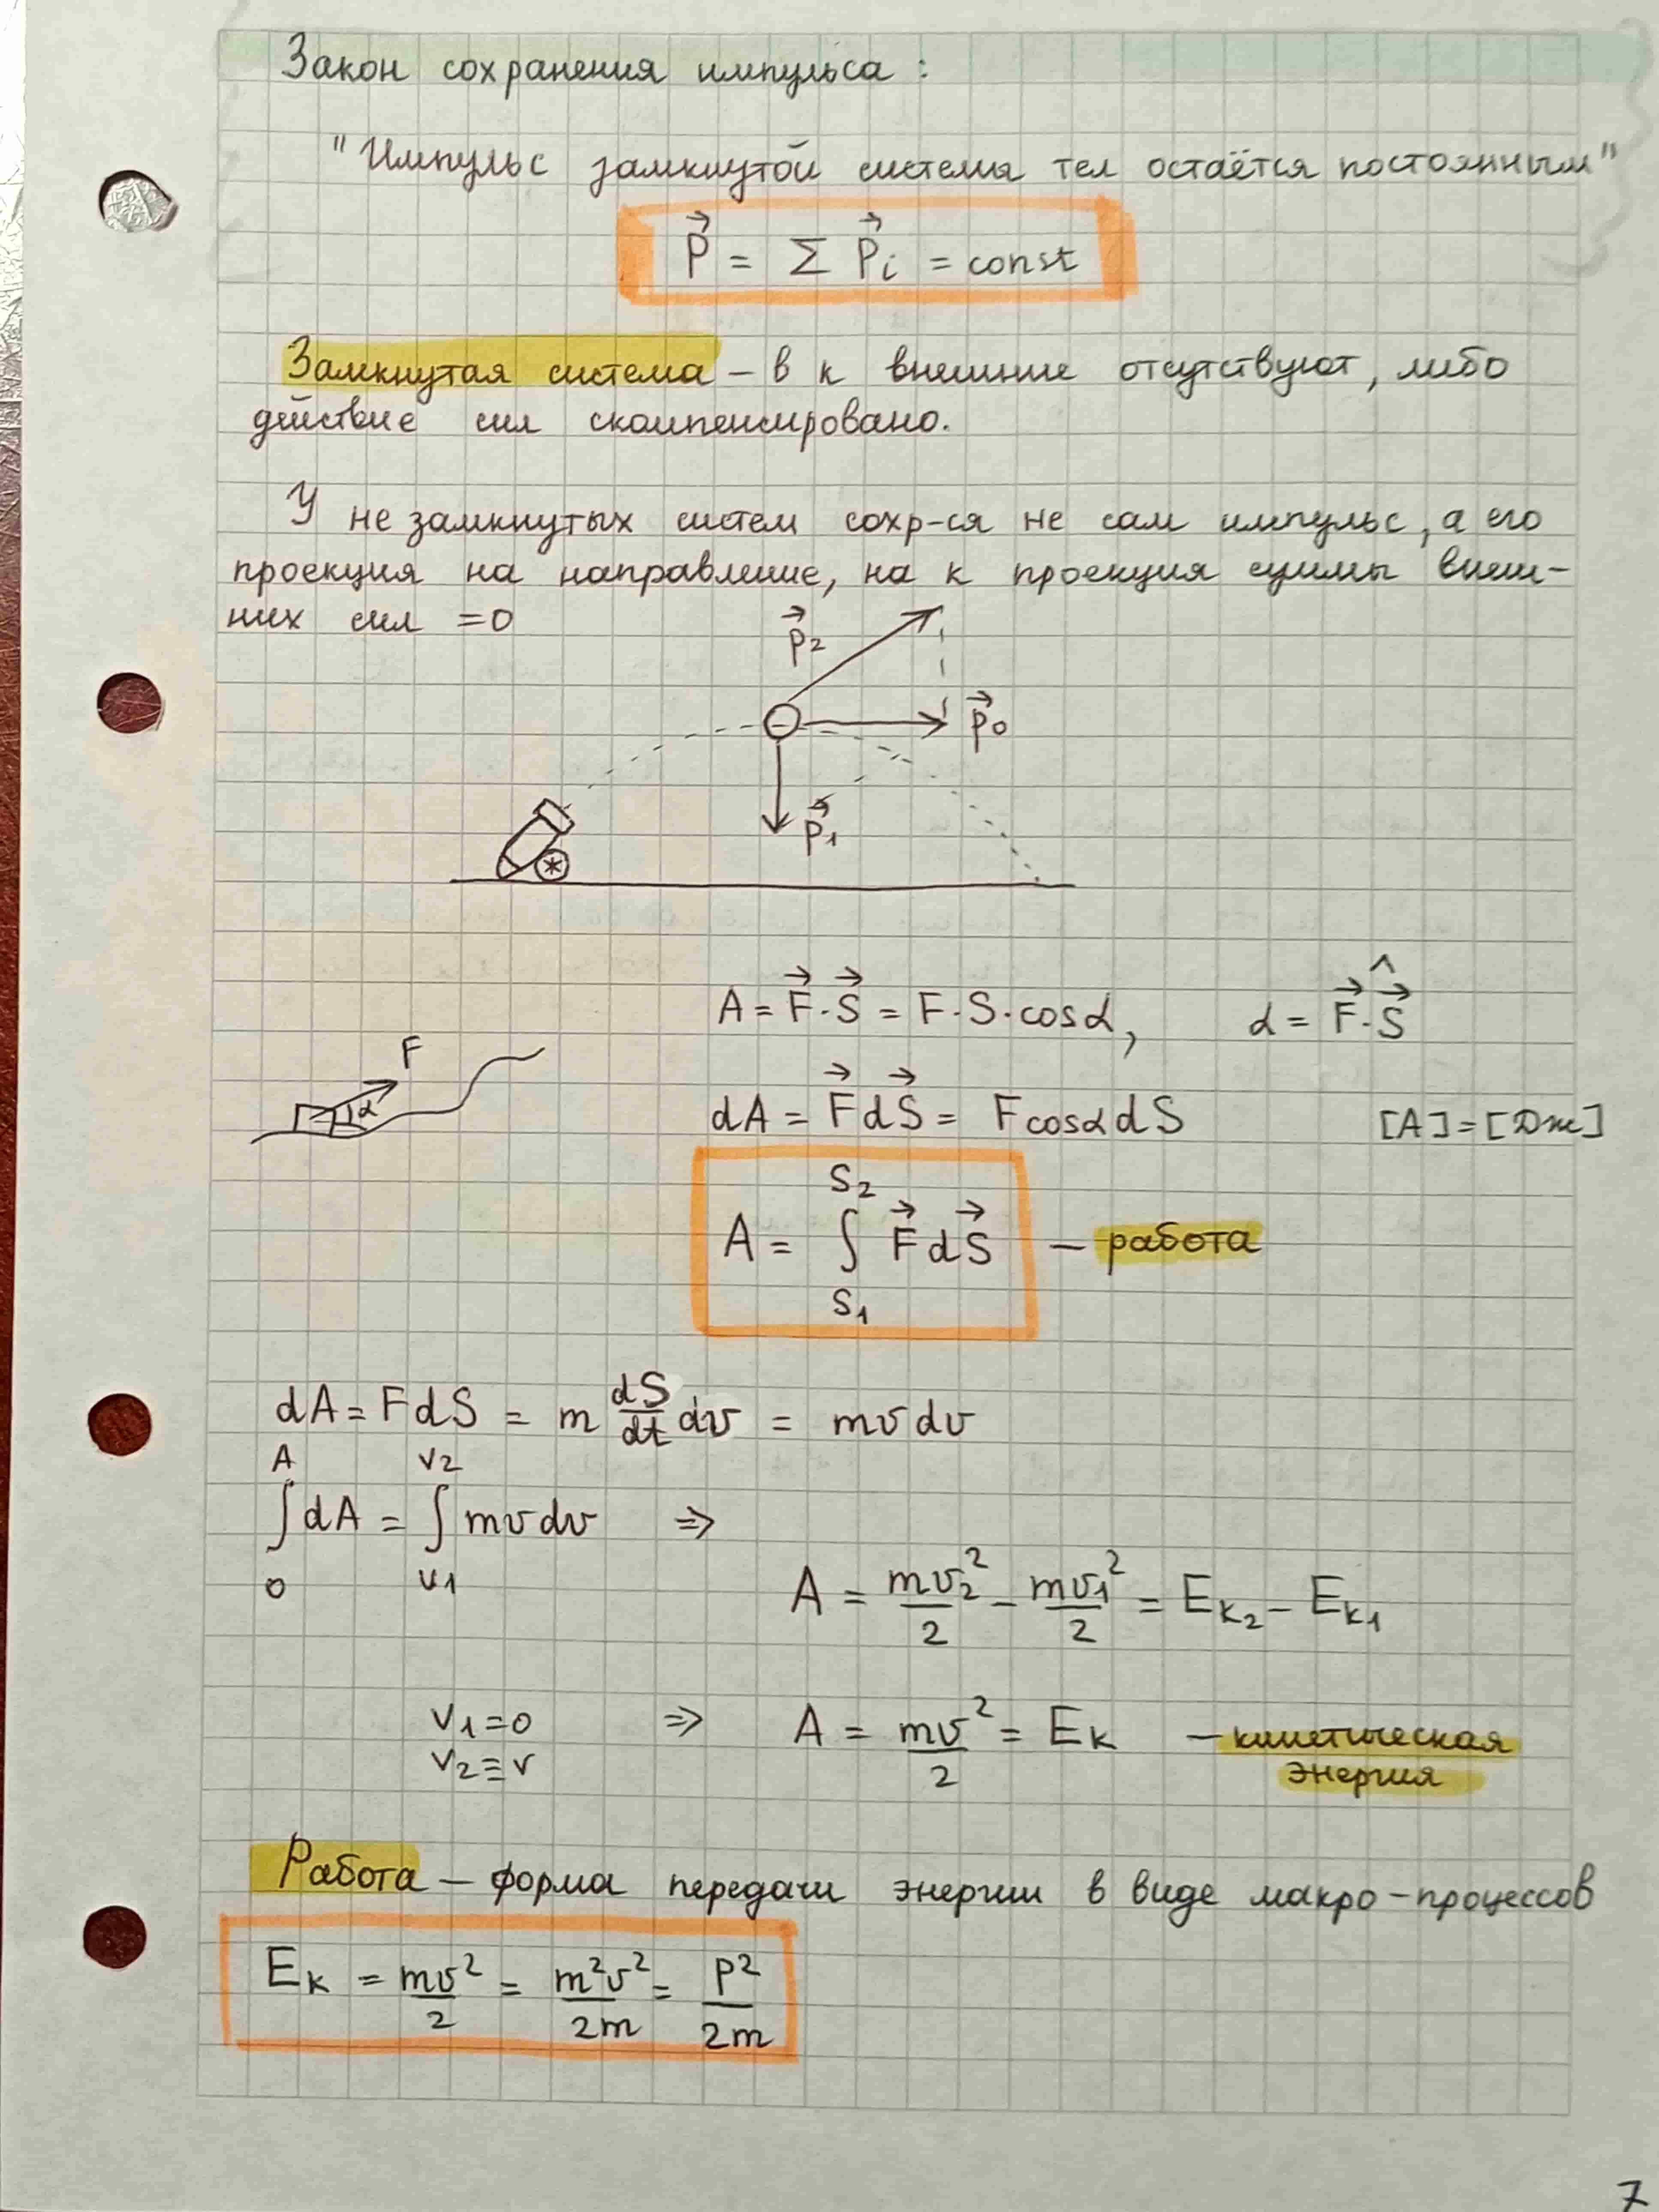 Закон сохранения импульса:
"Импульс замкнутой система тел остаётся постоянным"
P⃗ = Σ P⃗i = const
Замкнутая система – в к внешние отсутствуют, либо
действие сил скомпенсировано.
У не замкнутых систем сохр-ся не сам импульс, а его
проекция на направление, на к проекция суммы внеш-
них сил =0
p⃗2
p⃗0
p⃗1
A = F⃗·S⃗ = F·S·cosα, α = F⃗·^S⃗
F
α
dA = F⃗dS⃗ = Fcosα dS [A]=[Дж]
A = ∫_{S1}^{S2} F⃗dS⃗ – работа
dA = FdS = m dS/dt dv = mv dv
∫_0^A dA = ∫_{v1}^{v2} mv dv ⇒
A = mv2²/2 – mv1²/2 = Eк2 – Eк1
v1=0 ⇒ A = mv²/2 = Eк – кинетическая
v2≡v энергия
Работа – форма передачи энергии в виде макро-процессов
Eк = mv²/2 = m²v²/2m = P²/2m
7